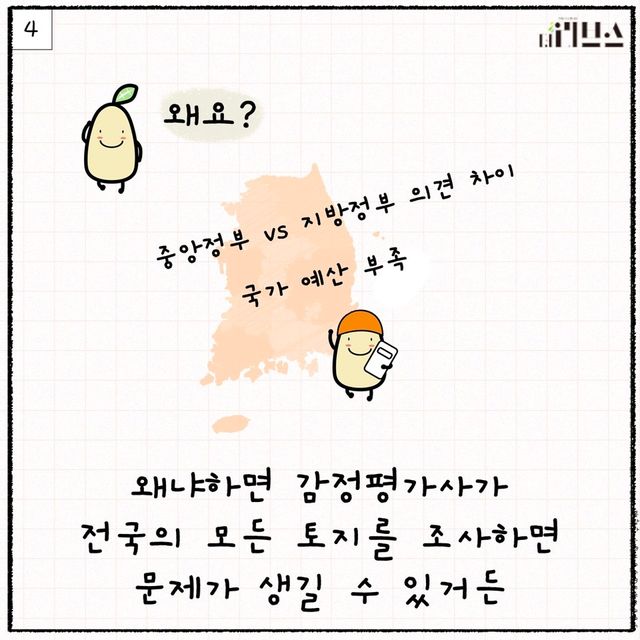 4
왜요?
중앙정부 vs 지방정부 의견 차이
국가 예산 부족
왜냐하면 감정평가사가
전국의 모든 토지를 조사하면
문제가 생길 수 있거든